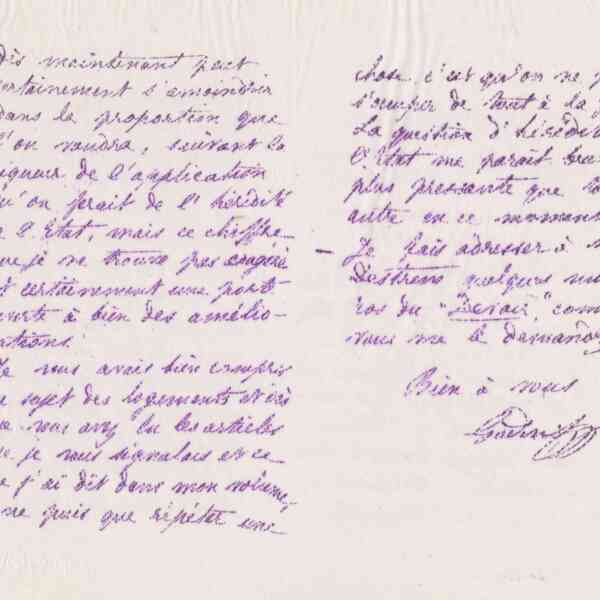 dès maintenant peut
ertainement s'amoindrir
dans la proportion que
l'on voudra, suivant la
igueur de l'application
qu'on ferait de l'hérédité
e l'Etat, mais ce chiffre
ue je ne trouve pas exagéré
t certainement une porte
uverte à bien des amélio-
ations.
Je vous avais bien compris
sujet des logements et
e vous avez lu les articles
e je vous signalais et ce
e j'ai dit dans mon volume,
ne puis que répéter une
chose c'est qu'on ne p
s'occuper de tout à la f
La question d'hérédit
l'Etat me paraît
plus pressante que to
autre en ce moment
— Je fais adresser à M
Destrem quelques num
ros du "Devoir", com
vous me le demandez
Bien à vous
Godin